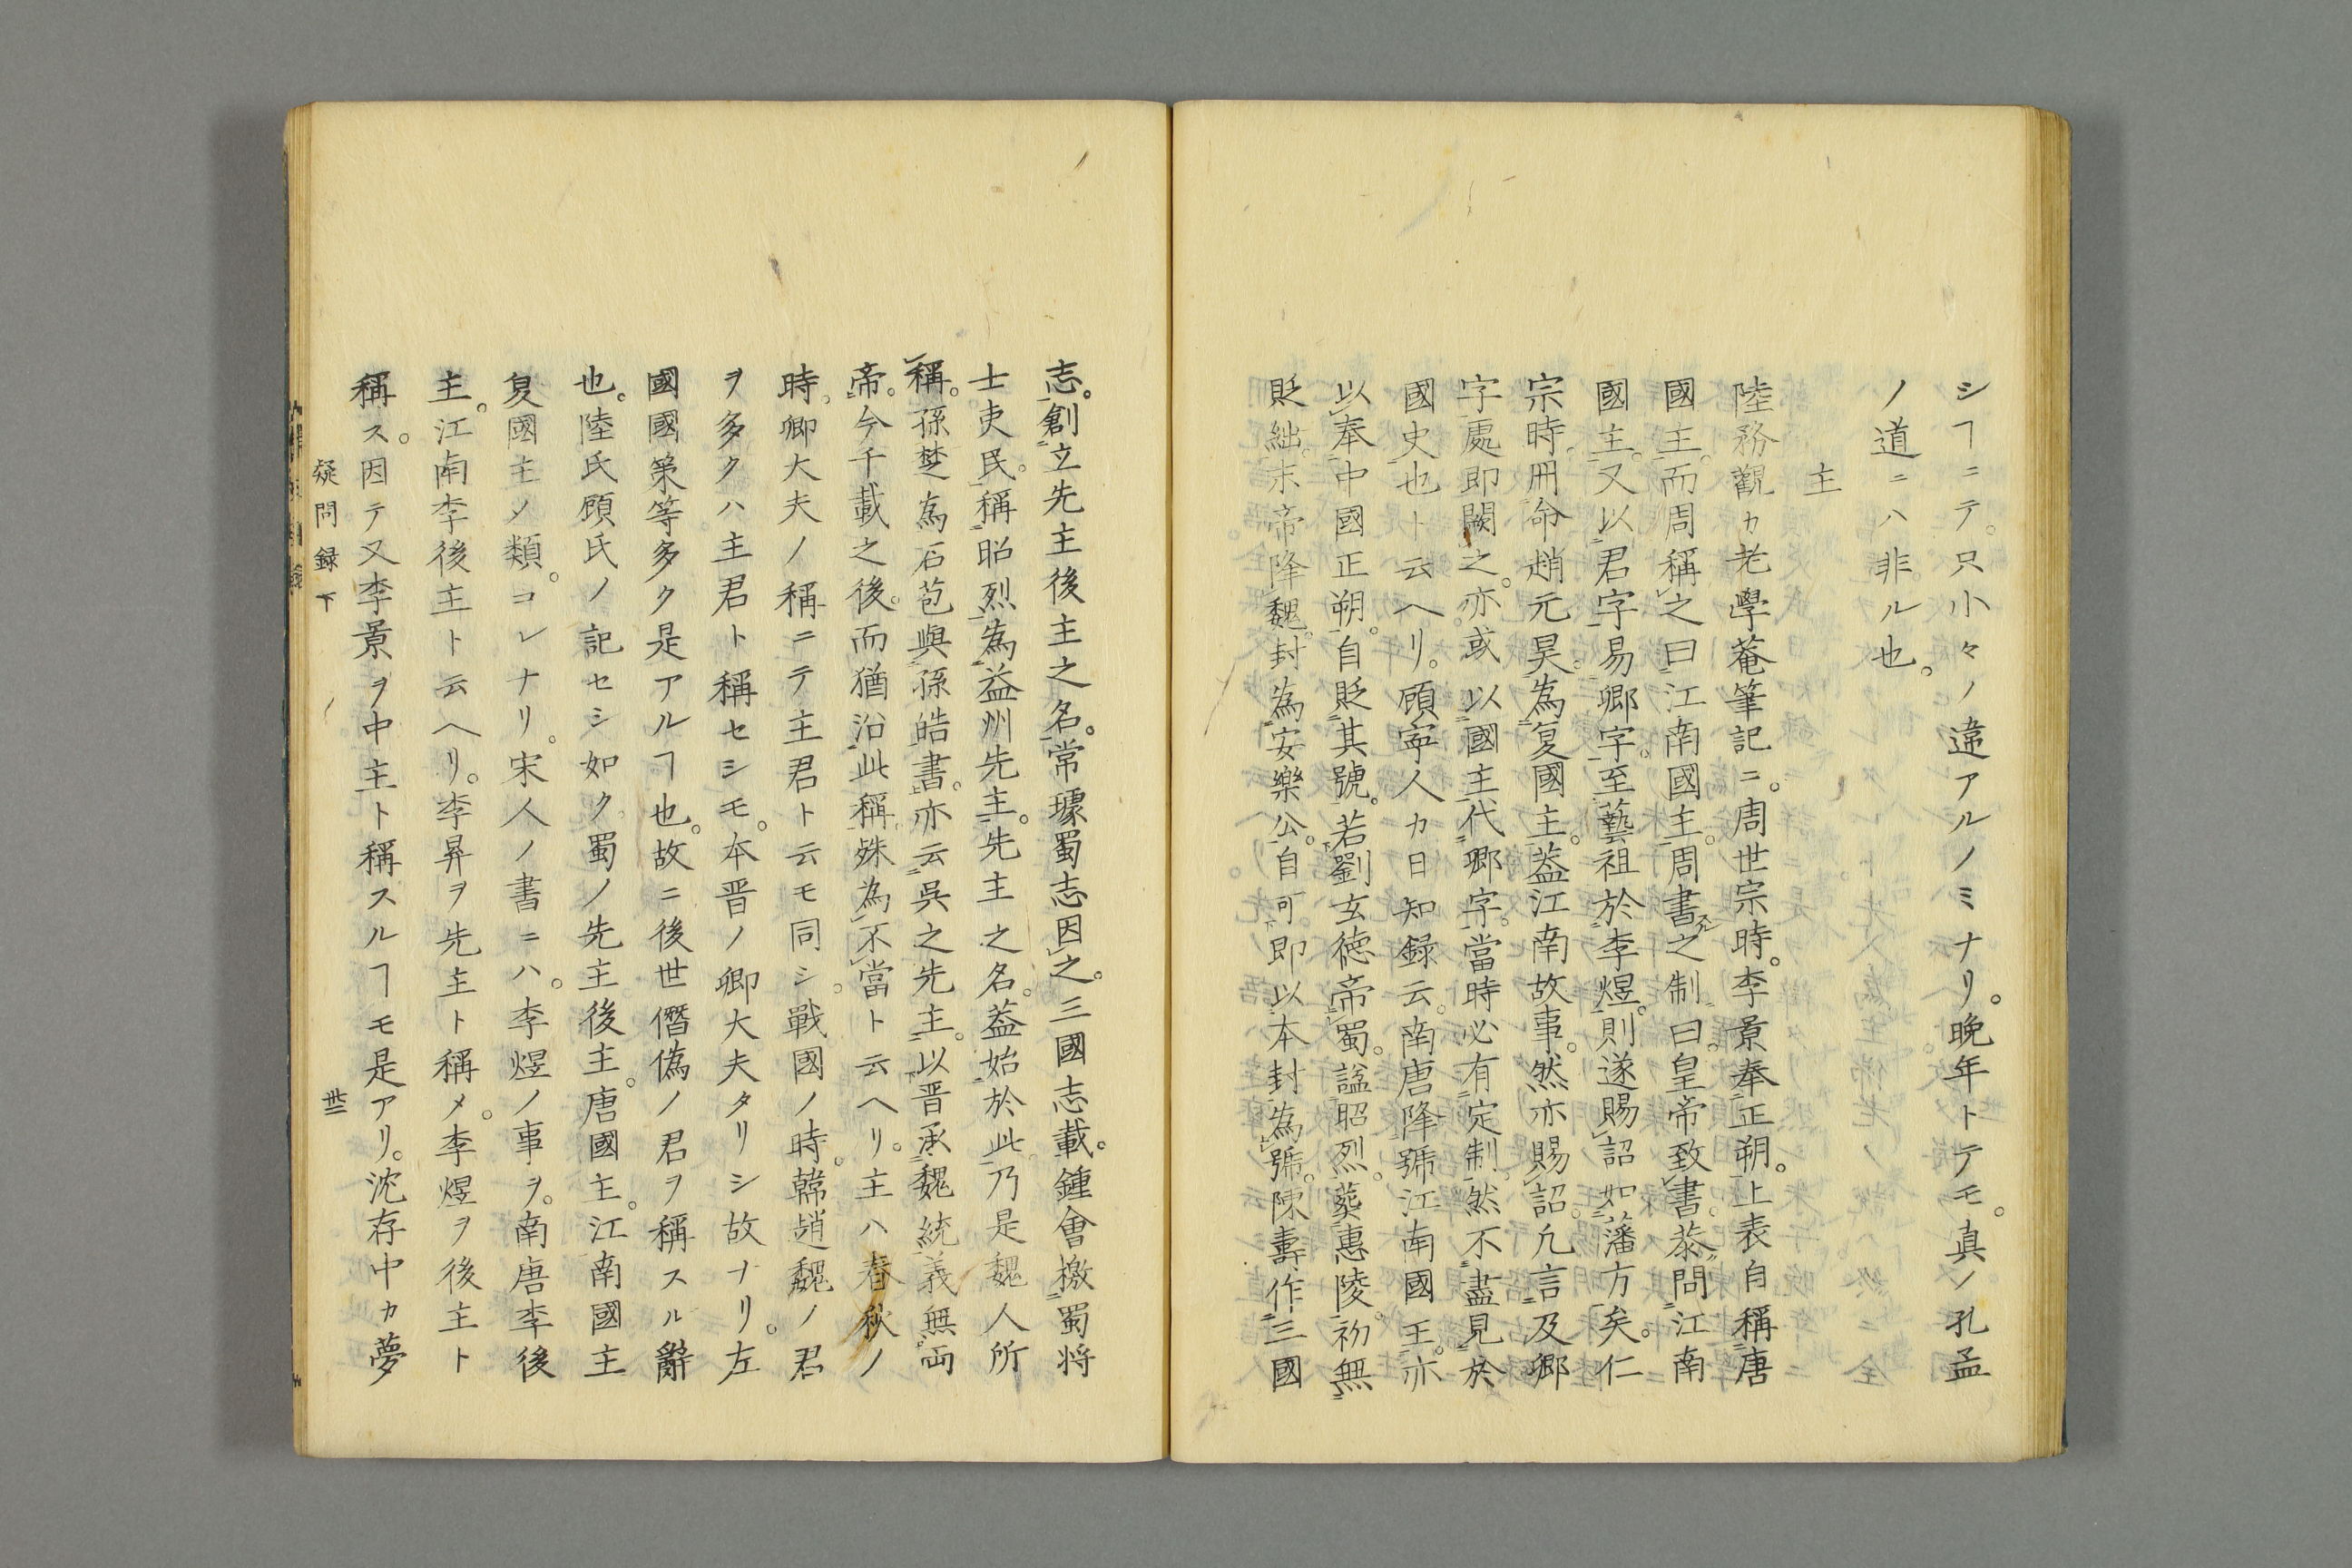 シヿニテ。只小々ノ違アルノミナリ。晩年トテモ。真ノ孔孟
ノ道ニハ非ル也。
主
陸務觀カ老學菴筆記ニ。周世宗時。李景奉正朔。上表自稱唐
國主。而周稱之曰江南國主。周書之制曰。皇帝致書恭問江南
國主。又以君字易卿字。至藝祖於李煜。則遂賜詔如藩方矣。仁
宗時。冊命趙元昊。為夏國主。蓋江南故事。然亦賜詔。凢言及卿
字處即闕之。亦或以國主代卿字。當時必有定制。然不盡見於
國史也ト云ヘリ。顧寧人カ日知録云。南唐降號江南國主。亦
以奉中國正朔。自貶其號。若劉玄徳帝蜀。謚昭烈。葬惠陵。初無
貶絀。末帝降魏。封為安樂公。自可即以本封為號。陳壽作三國
志。創立先主後主之名。常璩蜀志因之。三國志載。鍾會檄蜀将
士吏民。稱昭烈為益州先主。先主之名。蓋始於此。乃是魏人所
稱。孫楚為石苞與孫皓書。亦云呉之先主。以晋承魏統義無両
帝。今千載之後。而猶沿此稱殊為不當ト云ヘリ。主ハ春秋ノ
時。卿大夫ノ稱ニテ主君ト云モ同シ。戰國ノ時。韓趙魏ノ君
ヲ多クハ主君ト稱セシモ。本晋ノ卿大夫タリシ故ナリ。左
國國策等多ク是アルヿ也。故ニ後世僭偽ノ君ヲ稱スル辭
也。陸氏顧氏ノ記セシ如ク蜀ノ先主後主。唐國主。江南國主
夏國主ノ類。コレナリ。宋人ノ書ニハ。李煜ノ事ヲ。南唐李後
主。江南李後主ト云ヘリ。李昪ヲ先主ト稱メ。李煜ヲ後主ト
稱ス。因テ又李景ヲ中主ト稱スルヿモ是アリ。沈存中カ夢
疑問録下 卅二